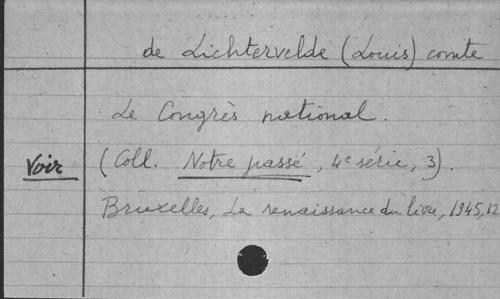 de Lichtervelde (Louis) comte
Le Congrès national.
Voir (Coll. Notre passé, 4e série, 3).
Bruxelles, La renaissance du livre, 1945, 12